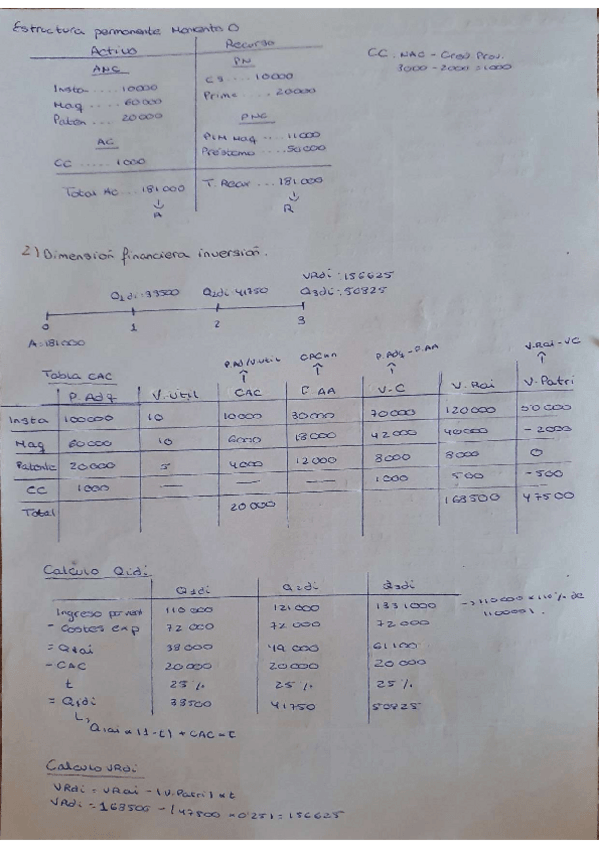 Estructura permanente Momento 0
Activo Recurso
ANC PN
Insta ..... 10000 CS .... 10000
Maq .... 60000 Prima .... 20000
Paten ... 20000
PNC
AC PLM Maq ... 11000
CC ..... 1000 Préstamo .... 50000
Total AC ... 181000 T. Recur ... 181000
A R
CC. NAC - Cred. Prov.
3000 - 2000 = 1000
2) Dimensión financiera inversión.
VRdi: 156625
Q1di: 33500 Q2di: 41750 Q3di: 50825
0 1 2 3
A: 181000
P.Ad/V.Util CAC x n P.Adq - P.AA V.Rai - VC
Tabla CAC
P. Adq V. Util CAC C AA V-C V. Rai V. Patri
Insta 100000 10 10000 30000 70000 120000 50000
Maq 60000 10 6000 18000 42000 40000 - 2000
Patente 20000 5 4000 12000 8000 8000 0
CC 1000 — — — 1000 500 - 500
Total 20000 168500 47500
Calculo Qidi
Q1di Q2di Q3di
Ingreso por vent 110000 121000 1331000 → 110000 + 110% de 110000).
- Costes exp 72000 72000 72000
= Qiai 38000 49000 61100
- CAC 20000 20000 20000
t 25% 25% 25%
= Qidi 33500 41750 50825
Qiai x (1-t) + CAC - t
Calculo VRdi
VRdi = VRai - (V.Patri) x t
VRdi = 168500 - (47500 x 0'25) = 156625